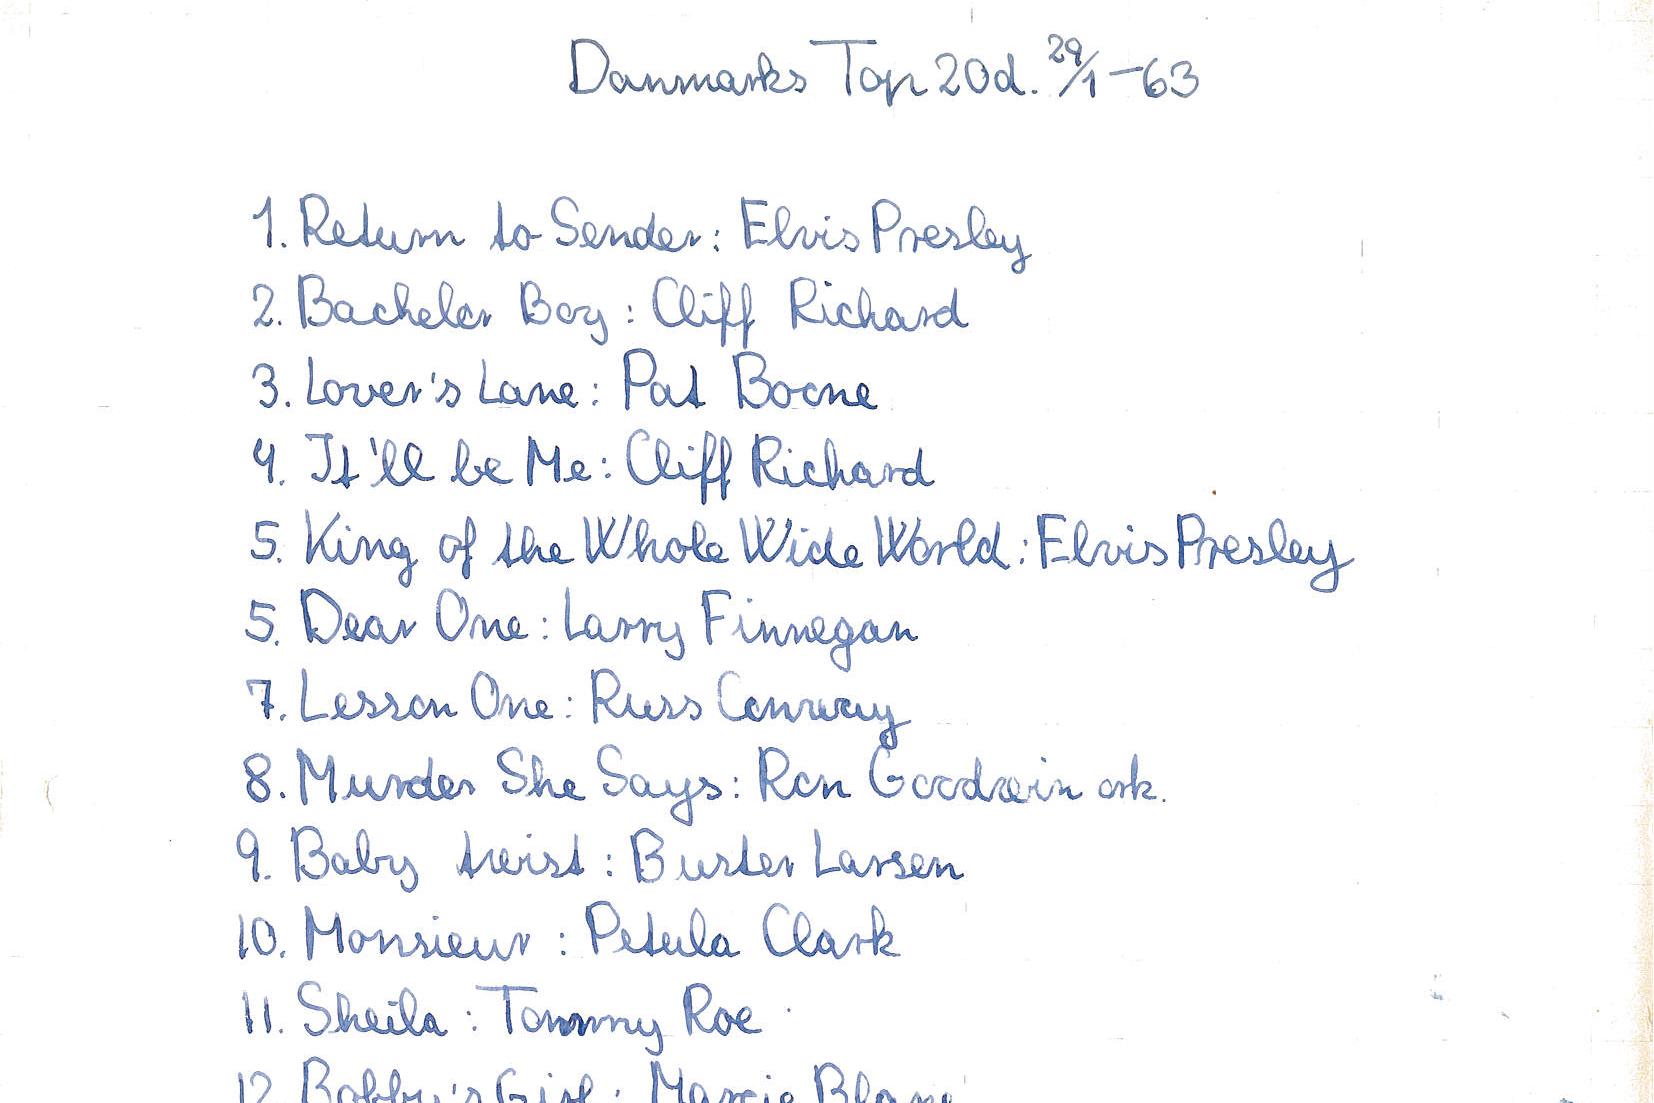 Danmarks Top 20 d. 29/1-63
1. Return to Sender: Elvis Presley
2. Bachelor Boy: Cliff Richard
3. Lover's Lane: Pat Boone
4. It'll be Me: Cliff Richard
5. King of the Whole Wide World: Elvis Presley
5. Dear One: Larry Finnegan
7. Lesson One: Russ Conway
8. Murder She Says: Ron Goodwin ork.
9. Baby twist: Buster Larsen
10. Monsieur: Petula Clark
11. Sheila: Tommy Roe
12 Bobby's Girl: Marcie Blane